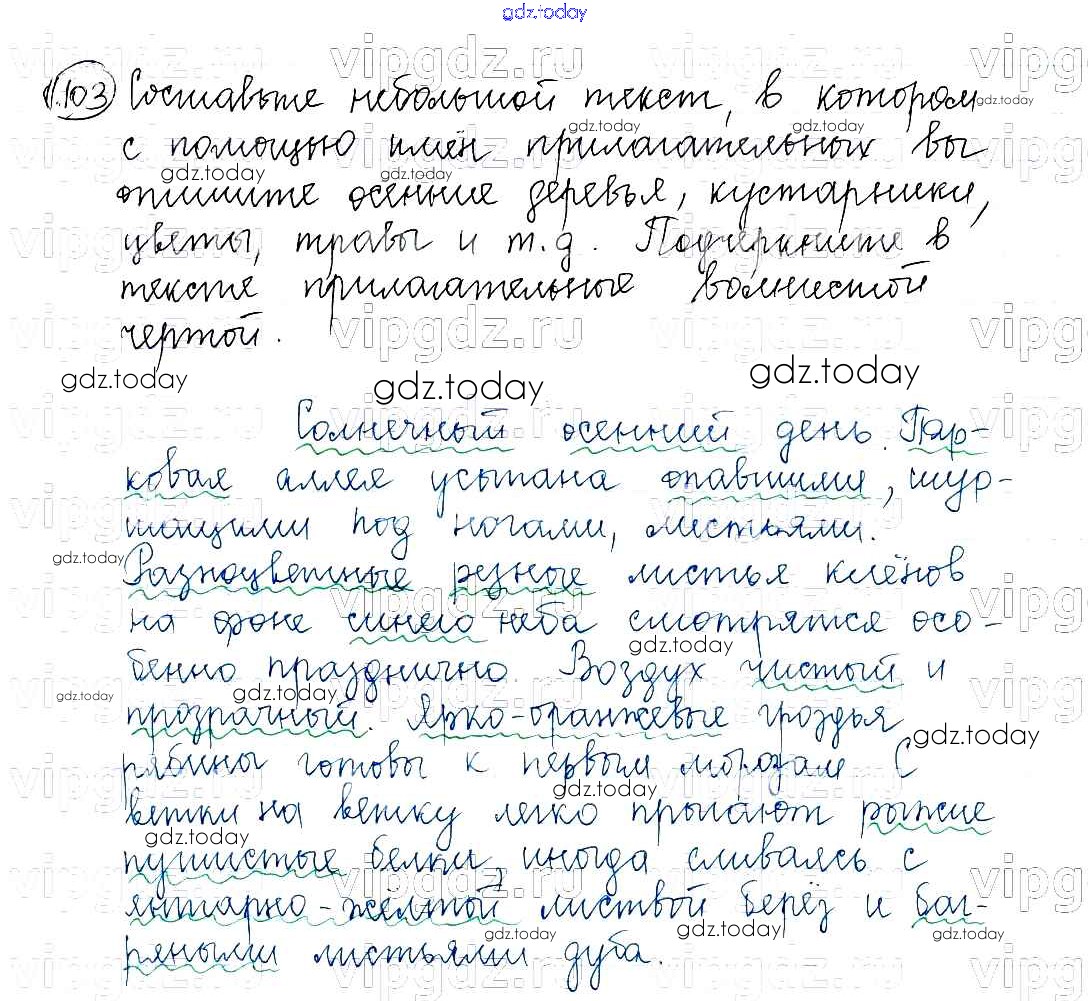 gdz.today
1.103 Составьте небольшой текст, в котором
с помощью имён прилагательных вы
опишите осенние деревья, кустарники,
цветы, травы и т.д. Подчеркните в
тексте прилагательные волнистой
чертой.
Солнечный осенний день. Пар-
ковая аллея усыпана опавшими, шур-
шащими под ногами, листьями.
Разноцветные резные листья клёнов
на фоне синего неба смотрятся осо-
бенно празднично. Воздух чистый и
прозрачный. Ярко-оранжевые гроздья
рябины готовы к первым морозам. С
ветки на ветку легко прыгают рыжие
пушистые белки, иногда сливаясь с
янтарно-жёлтой листвой берёз и баг-
ряными листьями дуба.